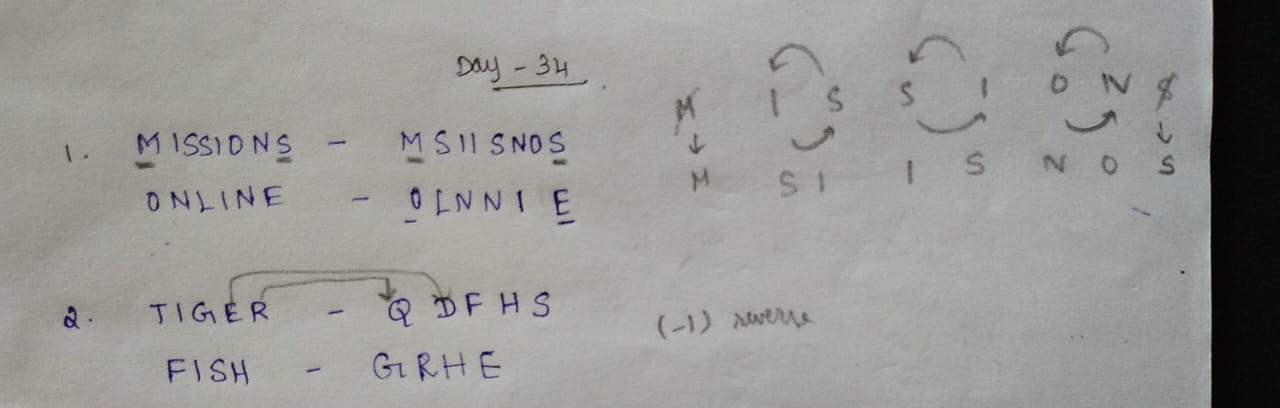 Day - 34
1. MISSIONS - MSIISNOS
ONLINE - OLNNIE
M I S S I O N S
M S I I S N O S
2. TIGER - QDFHS
(-1) reverse
FISH - GRHE